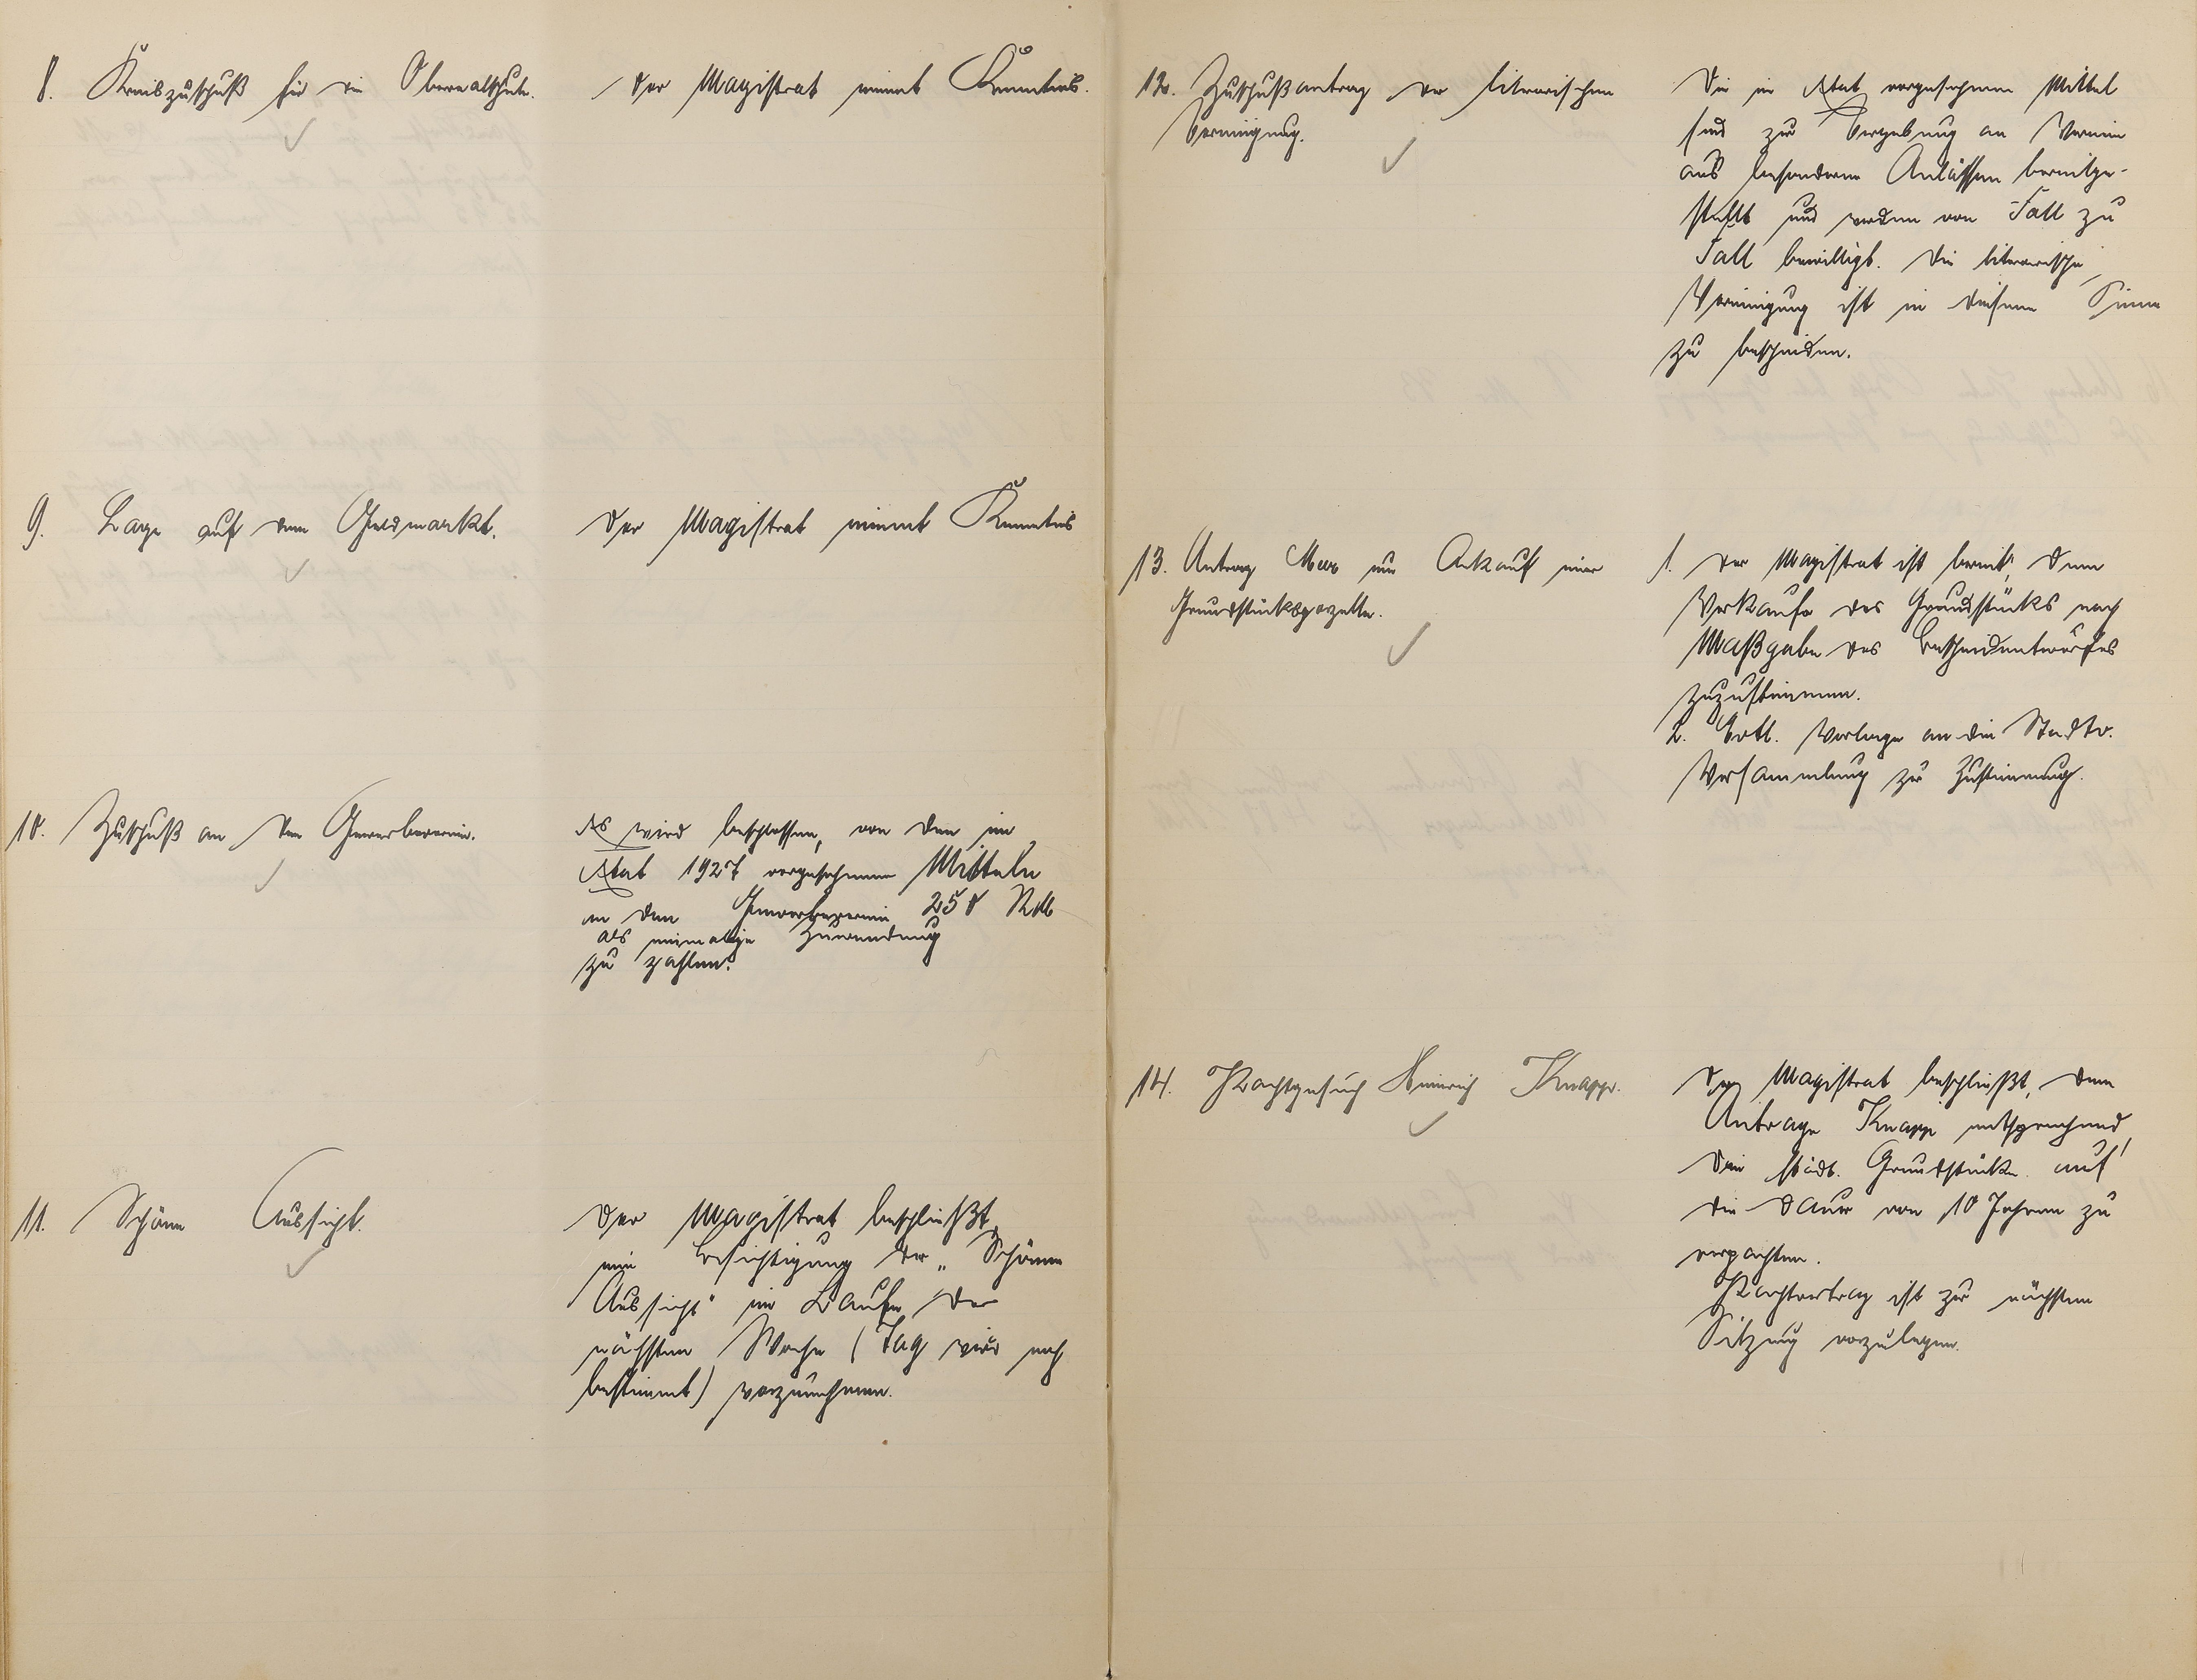 8. Kreiszuschuß für die Oberrealschule.
Der Magistrat nimmt Kenntnis.
9. Lage auf dem Geldmarkt.
Der Magistrat nimmt Kenntnis
10. Zuschuß an den Gewerbeverein.
Es wird beschlossen, von den im
Etat 1927 vorgesehenen Mitteln
an den Gewerbeverein 250 RM
als einmalige Zuwendung
zu zahlen.
11. Schöne Aussicht.
Der Magistrat beschließt,
eine Besichtigung der „Schönen
Aussicht" im Laufe der
nächsten Woche (Tag wird noch
bestimmt) vorzunehmen.
12. Zuschußantrag der literarischen
Vereinigung.
Die im Etat vorgesehenen Mittel
sind zur Vergebung an Vereine
aus besonderen Anlässen bereitge-
stellt und werden von Fall zu
Fall bewilligt. Die literarische
Vereinigung ist in diesem Sinne
zu bescheiden.
13. Antrag um Ankauf einer
Grundstücksparzelle.
1. Der Magistrat ist bereit, dem
Verkaufe des Grundstücks nach
Maßgabe des Bescheidentwurfes
zuzustimmen.
2. Vorlage an die Stadtv.
Versammlung zur Zustimmung.
14. Pachtgesuch Heinrich Knapp.
Der Magistrat beschließt, dem
Antrage Knapp entsprechend,
die städt. Grundstücke auf
die Dauer von 10 Jahren zu
verpachten.
Pachtvertrag ist zur nächsten
Sitzung vorzulegen.